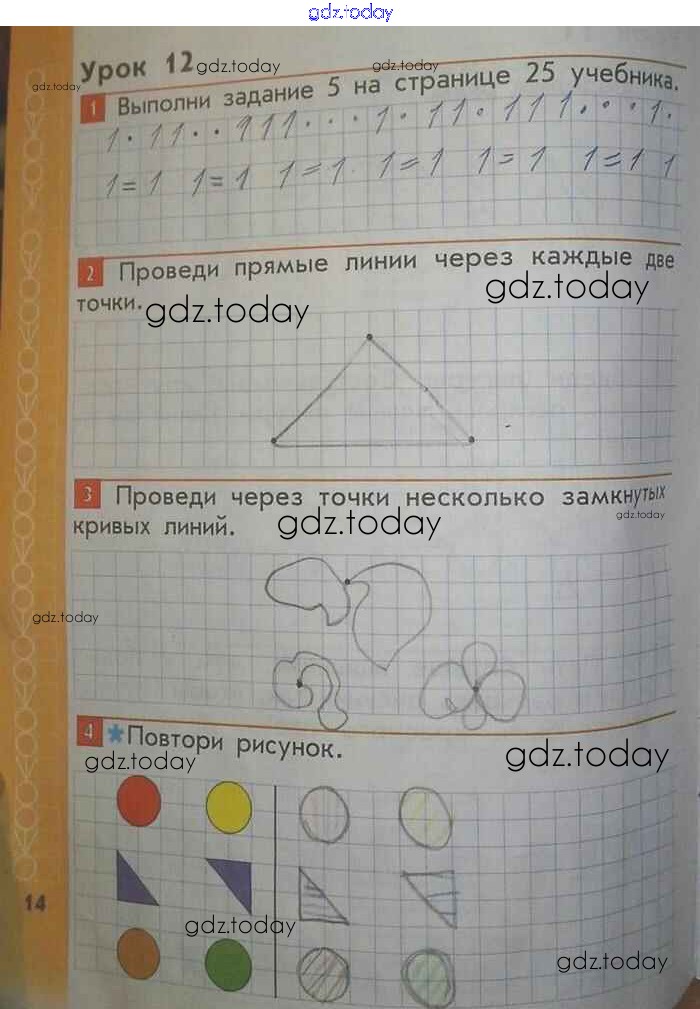 gdz.today
Урок 12 gdz.today gdz.today
1 Выполни задание 5 на странице 25 учебника.
gdz.today
1 · 1 1 · · 1 1 1 · · · 1 · 1 1 · 1 1 1 · · · 1 ·
1 = 1 1 = 1 1 = 1 1 = 1 1 = 1 1 = 1 1
2 Проведи прямые линии через каждые две
точки. gdz.today gdz.today
3 Проведи через точки несколько замкнутых
кривых линий. gdz.today gdz.today
gdz.today
4 *Повтори рисунок.
gdz.today gdz.today
14
gdz.today
gdz.today